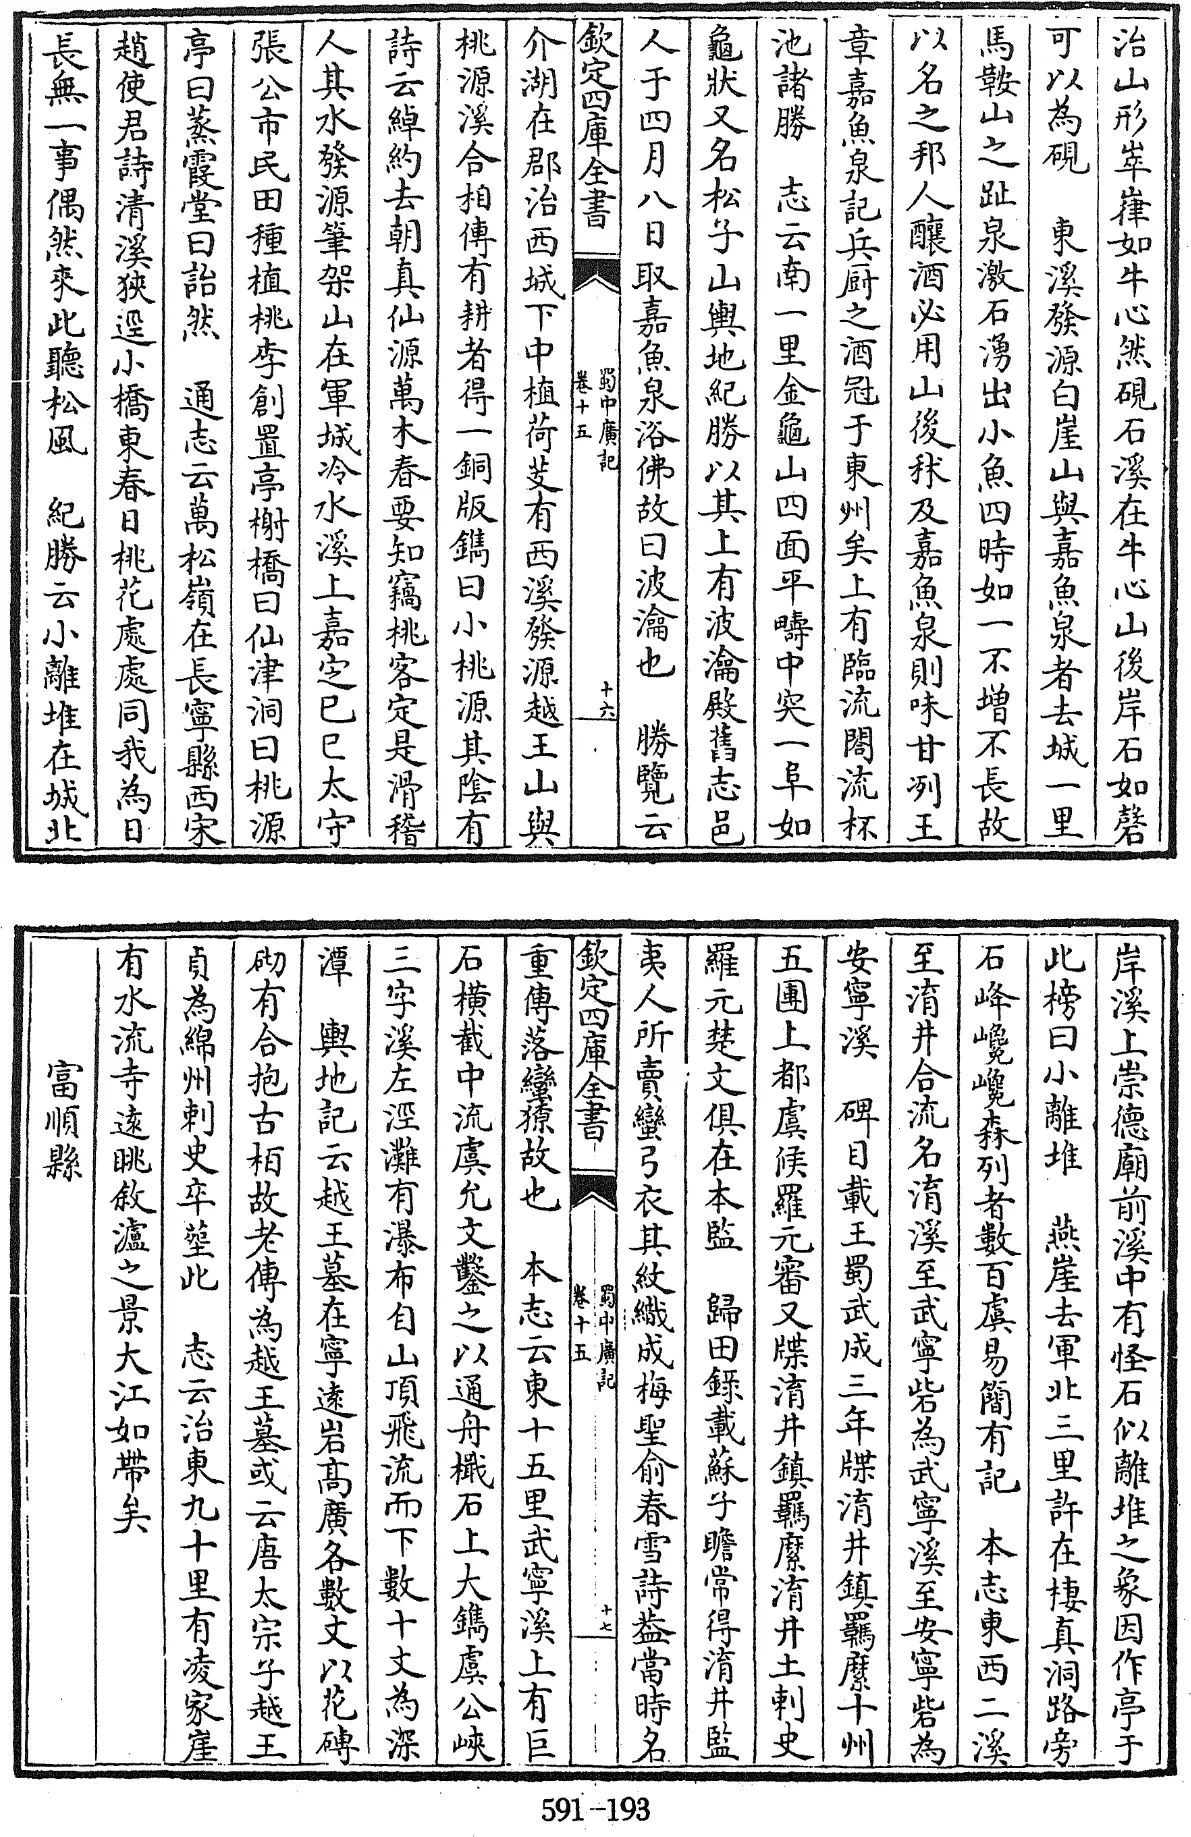 治山形崒嵂如牛心然硯石溪在牛心山後岸石如磬
可以為硯　東溪發源白崖山與嘉魚泉者去城一里
馬鞍山之趾泉激石湧出小魚四時如一不增不長故
以名之邦人釀酒必用山後秫及嘉魚泉則味甘冽王
章嘉魚泉記兵厨之酒冠于東州矣上有臨流閣流杯
池諸勝　志云南一里金龜山四面平疇中突一阜如
龜狀又名松子山輿地紀勝以其上有波瀹殿舊志邑
人于四月八日取嘉魚泉浴佛故曰波瀹也　勝覽云
欽定四庫全書
蜀中廣記
卷十五
十六
介湖在郡治西城下中植荷芰有西溪發源越王山與
桃源溪合相傳有耕者得一銅版鐫曰小桃源其陰有
詩云綽約去朝真仙源萬木春要知竊桃客定是滑稽
人其水發源筆架山在軍城冷水溪上嘉定已巳太守
張公市民田種植桃李創置亭榭橋曰仙津洞曰桃源
亭曰蒸霞堂曰詒然　通志云萬松嶺在長寧縣西宋
趙使君詩清溪狹逕小橋東春日桃花處處同我為日
長無一事偶然來此聽松風　紀勝云小離堆在城北
岸溪上崇德廟前溪中有怪石似離堆之象因作亭于
此榜曰小離堆　燕崖去軍北三里許在棲真洞路旁
石峰巉巉森列者數百虞易簡有記　本志東西二溪
至淯井合流名淯溪至武寧砦為武寧溪至安寧砦為
安寧溪　碑目載王蜀武成三年牒淯井鎮羈縻十州
五團上都虞候羅元審又牒淯井鎮羈縻淯井土刺史
羅元楚文俱在本監　歸田錄載蘇子瞻常得淯井監
夷人所賣蠻弓衣其紋織成梅聖俞春雪詩葢當時名
欽定四庫全書
蜀中廣記
卷十五
十七
重傳落蠻獠故也　本志云東十五里武寧溪上有巨
石橫截中流虞允文鑿之以通舟檝石上大鐫虞公峽
三字溪左涇灘有瀑布自山頂飛流而下數十丈為深
潭　輿地記云越王墓在寧遠岩高廣各數丈以花磚
砌有合抱古柏故老傳為越王墓或云唐太宗子越王
貞為綿州刺史卒塟此　志云治東九十里有凌家崖
有水流寺遠眺敘瀘之景大江如帶矣
富順縣
591-193